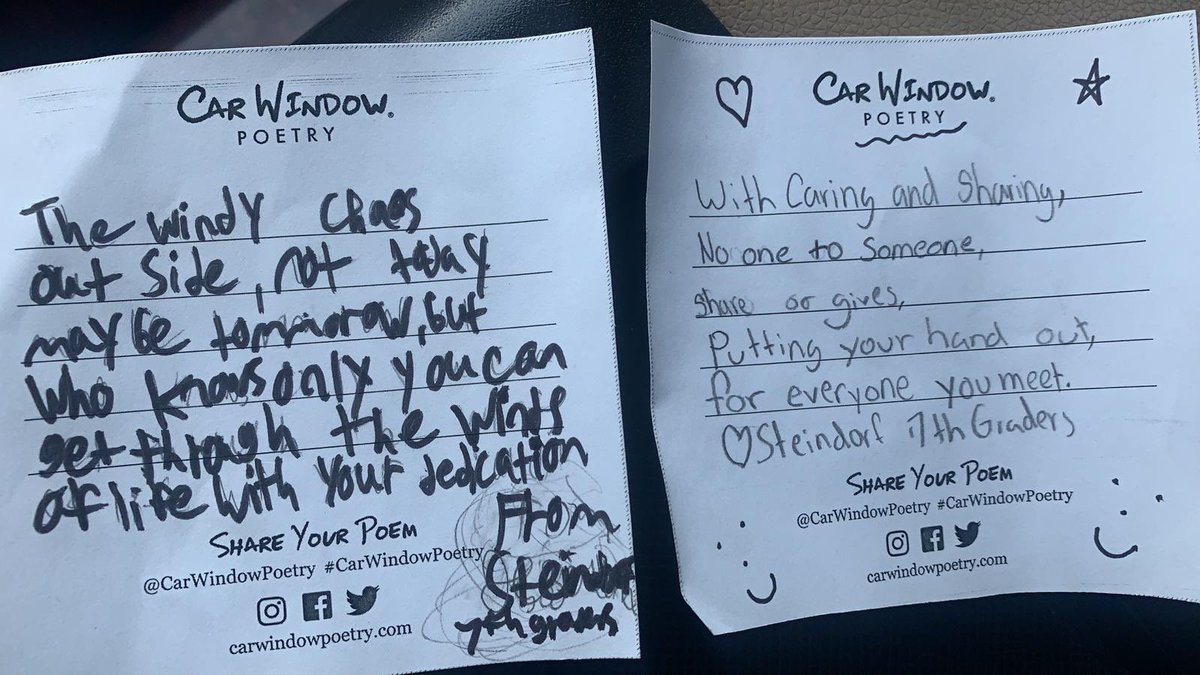 CAR WINDOW.
POETRY
The windy chaos
out side, not today
maybe tommorow, but
who knows only you can
get through the winds
of life with your dedcation
From
Steindorf
7th graders
SHARE YOUR POEM
@CarWindowPoetry #CarWindowPoetry
carwindowpoetry.com
CAR WINDOW.
POETRY
With Caring and Sharing,
No one to Someone,
Share or gives,
Putting your hand out,
for everyone you meet.
♡Steindorf 7th Graders
SHARE YOUR POEM
@CarWindowPoetry #CarWindowPoetry
carwindowpoetry.com